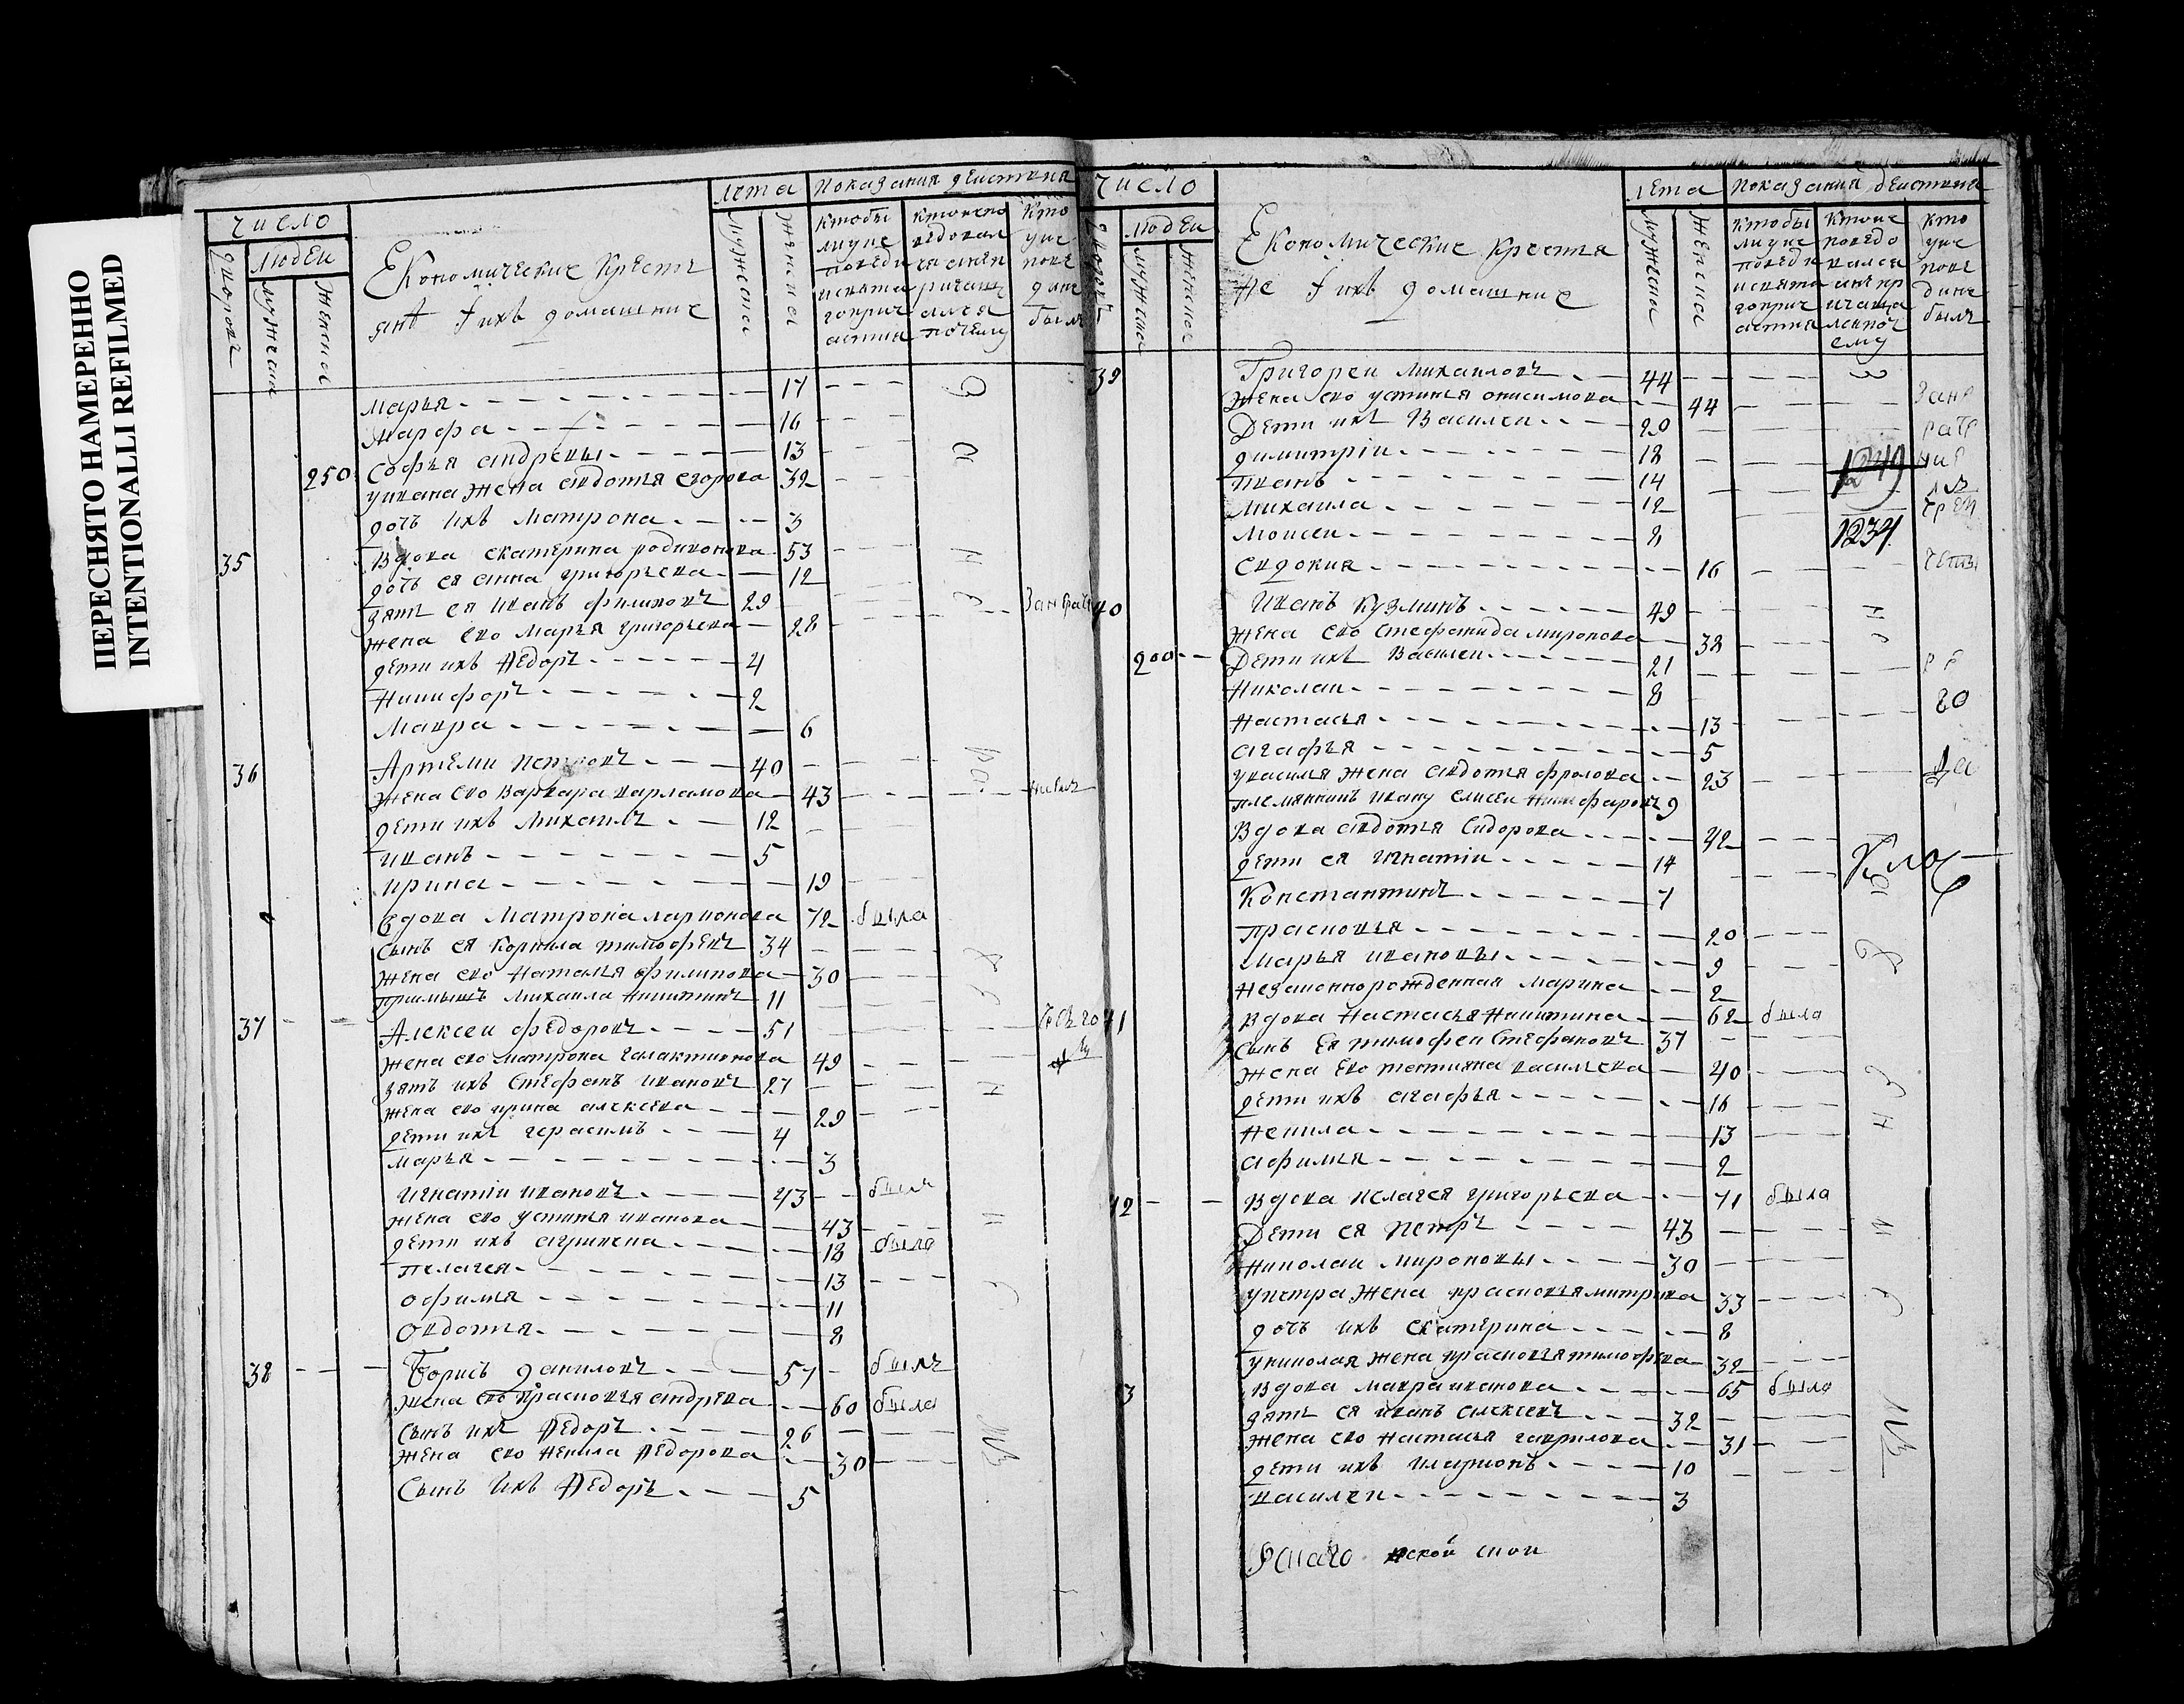 ПЕРЕСНЯТО НАМЕРЕННО
INTENTIONALLI REFILMED
число
людеи
дворовъ
мужеска
женска
Економические крестья
анѣ и ихъ домашние
лета
мужеска
женска
показания деиствия
ктобы
ли у ис
поведи
и свята
го прич
астия
кто испо
ведовал
ся а не п
ричащ
ался
и почему
кто
у ис
пове
ди не
былъ
марья 17
марфа 16
250 софья андревы 13
у ивана жена авдотья егорова 32
дочъ ихъ матрона 3
35 вдова екатерина родионова 53
дочь ея анна григорьева 12
зять ея иванъ филиповъ 29
жена ево марья григорьева 28
дети ихъ ѳедоръ 4
никифоръ 2
мавра 6
36 Артеми петровъ 40
жена ево варвара варламова 43
дети ихъ михаилъ 12
иванъ 5
ирина 19
вдова матрона ларионова 72 была
сынъ ея корнила тимофеевъ 34
жена ево наталья филипова 30
приимышъ михаила никитинъ 11
37 Алексеи федоровъ 51
жена ево матрона галактионова 49
зятъ ихъ стефанъ ивановъ 27
жена ево ирина алексеева 29
дети ихъ герасимъ 4
марья 3
игнатіи ивановъ 43 былъ
жена ево устинья иванова 43
дети ихъ агрипена 18 была
пелагея 13
офимья 11
овдотья 8
38 Борисъ даниловъ 57 былъ
жена ево прасковья андрева 60 была
сынъ ихъ ѳедоръ 26
жена ево ненила ѳедорова 30
сынъ ихъ ѳедоръ 5
число
дворовъ
людеи
мужеска
женска
Економические крестья
не и ихъ домашние
лета
мужеска
женска
показания деиствия
ктобы
ли у ис
поведи
и свята
го прич
астия
кто ис
поведо
вался
а не пр
ичаща
лся и поч
ему
кто
у ис
пове
ди не
былъ
39 Григореи михаиловъ 44
жена ево устинья онисимова 44
Дети ихъ василеи 20
димитріи 18
иванъ 14
михаила 12
моисеи 8
евдокия 16
1249
1234
40 иванъ кузминъ 49
жена ево стефанида миронова 38
200 Дети ихъ василеи 21
николаи 8
настасья 13
агафья 5
у василья жена авдотья фролова 23
племянникъ ивану елисеи никифаровъ 9
вдова авдотья сидорова 42
дети ея игнатіи 14
константинъ 7
прасковья 20
марья ивановы 9
незаконнорожденная марина 2
41 вдова настасья никитина 62 была
сынъ ея тимофеи стефановъ 37
жена ево татияна васильева 40
дети ихъ агафья 16
ненила 13
афимья 2
42 вдова пелагея григорьева 71 была
Дети ея петръ 43
николаи мироновы 30
у петра жена прасковья митрева 33
дочь ихъ екатерина 8
у николая жена прасковья тимофева 32
3 вдова мавра иванова 65 была
зять ея иванъ алексеевъ 32
жена ево настасья гаврилова 31
дети ихъ иларионъ 10
василеи 3